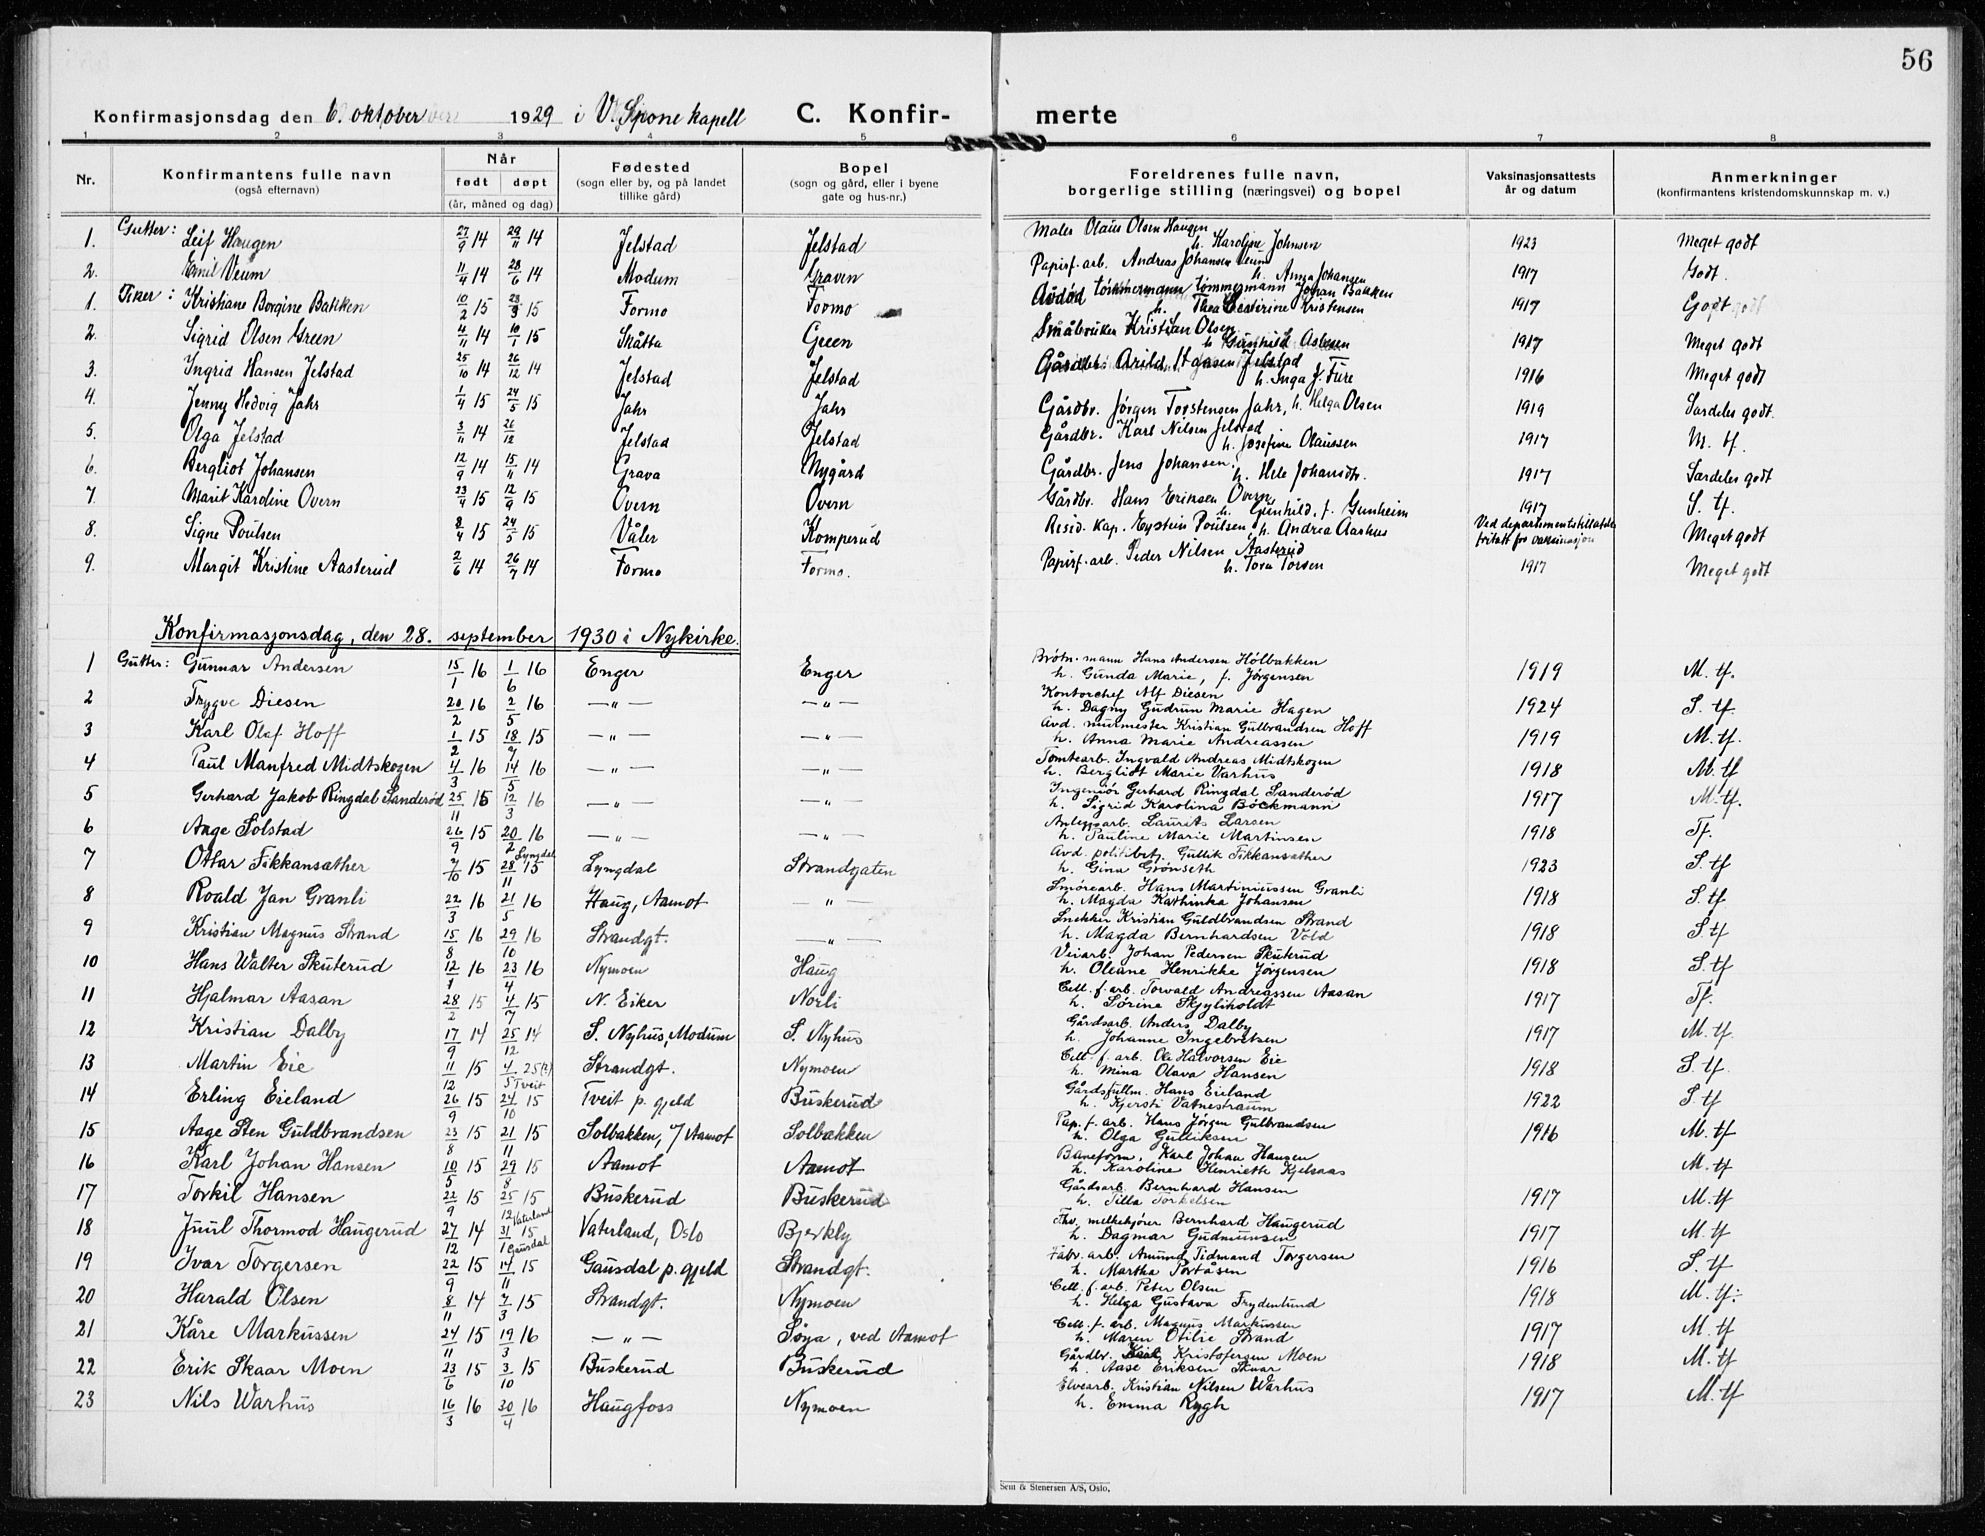 56
Konfirmasjonsdag den 6. oktober 1929 i V. Spone kapell C. Konfir- merte
1 2 3 4 5 6 7 8
Nr. Konfirmantens fulle navn (også efternavn) Når født døpt (år, måned og dag) Fødested (sogn eller by, og på landet tillike gård) Bopel (sogn og gård, eller i byene gate og hus-nr.) Foreldrenes fulle navn, borgerlige stilling (næringsvei) og bopel Vaksinasjonsattests år og datum Anmerkninger (konfirmantens kristendomskunnskap m. v.)
1. Gutter: Leif Haugen 27/9 14 29/11 14 Jelstad Jelstad Maler Olaus Olsen Haugen h. Karoline Johnsen 1923 Meget godt
2. Emil Veum 11/4 14 28/6 14 Modum Gravin Papirf. arb. Andreas Johansen Veum h. Anna Johansen 1917 Godt.
1. Piker: Kristiane Borgine Bakken 10/2 15 28/3 15 Formo Formo Avdød tømmermann Johan Bakken h. Thea Severine Kristensen 1917 Godt
2. Sigrid Olsen Green 4/11 14 10/1 15 Skåtta Green Småbruker Kristian Olsen h. Gunhild Aslesen 1917 Meget godt
3. Ingrid Hansen Jelstad 25/10 14 26/12 14 Jelstad Jelstad Gårdbr. Arild Hansen Jelstad h. Inga J. Fure 1916 Meget godt
4. Jenny Hedvig Jahr 1/4 15 24/5 15 Jahr Jahr Gårdbr. Jørgen Torstensen Jahr, h. Helga Olsen 1919 Særdeles godt.
5. Olga Jelstad 3/11 14 26/12 Jelstad Jelstad Gårdbr. Karl Nilsen Jelstad h. Josefine Olaussen 1917 M. tf.
6. Bergliot Johansen 12/9 14 15/11 14 Grava Nygård Gårdbr. Jens Johansen h. Hele Johansdtr. 1917 Særdeles godt
7. Marit Karoline Overn 23/4 15 12/9 15 Overn Overn Gårdbr. Hans Eriksen Overn h. Gunhild, f. Gunheim 1917 S. tf.
8. Signe Poulsen 8/4 15 24/5 15 Våler Komperud Resid. kap. Eystein Poulsen h. Andrea Aarhus Ved departementstillatelse fritatt fro vaksinasjon Meget godt
9. Margit Kristine Aasterud 2/6 14 26/7 14 Formo Formo. Papirf. arb. Peder Nilsen Aasterud h. Tora Torsen 1917 Meget godt
Konfirmasjonsdag, den 28. september 1930 i Nykirke.
1 Gutter: Gunnar Andersen 15/1 16 1/6 16 Enger Enger Brøtn. mann Hans Andersen Hólbakken h. Gunda Marie, f. Jørgensen 1919 M. tf.
2 Trygve Diesen 20/2 16 2/5 16 —"— —"— Kontorchef Alf Diesen h. Dagny Gudrun Marie Hagen 1924 S. tf.
3 Karl Olaf Hoff 1/2 15 18/7 15 —"— —"— Avd. murmester Kristian Gulbrandsen Hoff h. Anna Marie Andreassen 1919 M. tf.
4 Paul Manfred Midtskogen 4/3 16 14/5 16 —"— —"— Tomtearb. Ingvald Andreas Midtskogen h. Bergliot Marie Varhus 1918 M. tf
5 Gerhard Jakob Ringdal Sanderød 25/11 15 12/3 16 —"— —"— Ingeniør Gerhard Ringdal Sanderød h. Sigrid Karolina Böckmann 1917 M. tf.
6 Aage Solstad 26/9 15 20/2 16 —"— —"— Anleggsarb. Laurits Larsen h. Pauline Marie Martinsen 1918 Tf.
7 Ottar Fikkansæther 7/10 15 Lyngdal 28/11 15 Lyngdal Strandgaten Avd. politibetj. Gullik Fikkansæther h. Gina Grønseth 1923 S. tf
8 Roald Jan Granli 22/3 16 21/5 16 Haug, Aamot —"— Smørearb. Hans Martiniussen Granli h. Magda Kathinka Johansen 1918 S. tf
9 Kristian Magnus Strand 15/8 16 29/10 16 Strandgt. —"— Snekker Kristian Guldbrandsen Strand h. Magda Bernhardsen Vold 1918 S. tf
10 Hans Walter Skuterud 12/1 16 23/4 16 Nymoen Haug Veiarb. Johan Pedersen Skuterud h. Oleane Henrikke Jørgensen 1918 S. tf
11 Hjalmar Aasan 28/2 15 4/7 15 N. Eiker Norli Cell. f. arb. Torvald Andreassen Aasan h. Sørine Skjyliholdt 1917 Tf.
12 Kristian Dalby 17/9 14 25/12 14 S. Nyhus, Modum S. Nyhus Gårdsarb. Anders Dalby h. Johanne Ingebretsen 1917 M. tf.
13 Martin Eie 11/12 15 4/5 25(?) Strandgt. Nymoen Cell. f. arb. Ole Halvorsen Eie h. Mina Olava Hansen 1918 S. tf.
14 Erling Eieland 26/9 15 Tveit 24/10 15 Tveit p. gjeld Buskerud Gårdsfullm. Hans Eieland h. Kjersti Vatnestraum 1922 S. tf
15 Aage Sten Guldbrandsen 23/8 15 21/11 15 Solbakken, Aamot Solbakken Pap. f. arb. Hans Jørgen Gulbrandsen h. Olga Gulliksen 1916 M. tf
16 Karl Johan Hansen 10/5 15 29/8 15 Aamot Aamot Baneform. Karl Johan Hansen h. Karoline Henriette Kjelsaas M. tf
17 Torkil Hansen 22/9 15 25/12 15 Buskerud Buskerud Gårdsarb. Bernhard Hansen h. Tilla Torkelsen 1917 M. tf
18 Juul Thormod Haugerud 27/12 14 Vaterland 31/1 15 Vaterland, Oslo Bjerkly Fhv. melkekjører Bernhard Haugerud h. Dagmar Gudmunsen 1917 M. tf
19 Ivar Torgersen 22/9 15 Gausdal 14/11 15 Gausdal p. gjeld Strandgt. Fabr. arb. Amund Tidmand Torgersen h. Martha Portåsen 1916 S. tf
20 Harald Olsen 8/11 14 7/3 15 Strandgt. Nymoen Cell. f. arb. Peter Olsen h. Helga Gustava Frydenlund 1918 M. tf.
21 Kåre Markussen 24/11 15 19/3 16 —"— Søya, ved Aamot Cell. f. arb. Magnus Markussen h. Maren Otilie Strand 1917 M. tf
22 Erik Skaar Moen 23/6 15 3/10 15 Buskerud Buskerud Gårdbr. Kristofersen Moen h. Aase Eriksen Skaar 1918 M. tf
23 Nils Warhus 16/3 16 30/4 16 Haugfoss Nymoen Elvearb. Kristian Nilsen Warhus h. Emma Rygh 1917 M. tf
Sem & Stenersen A/S, Oslo.